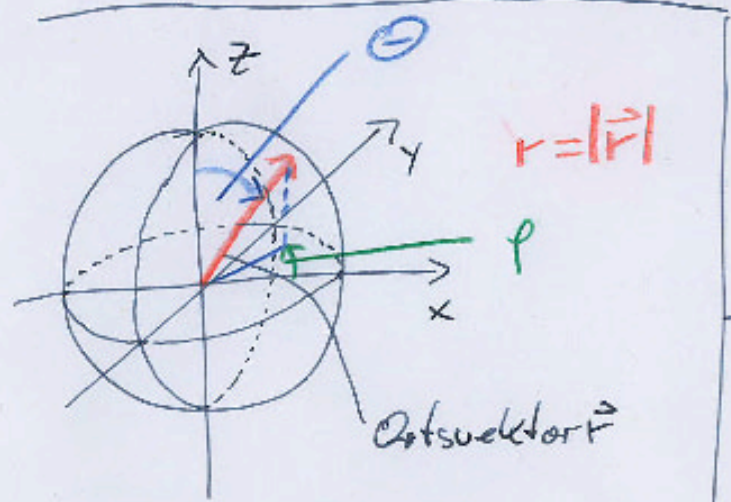 Θ
z
y
r = |r⃗|
φ
x
Ortsvektor r⃗